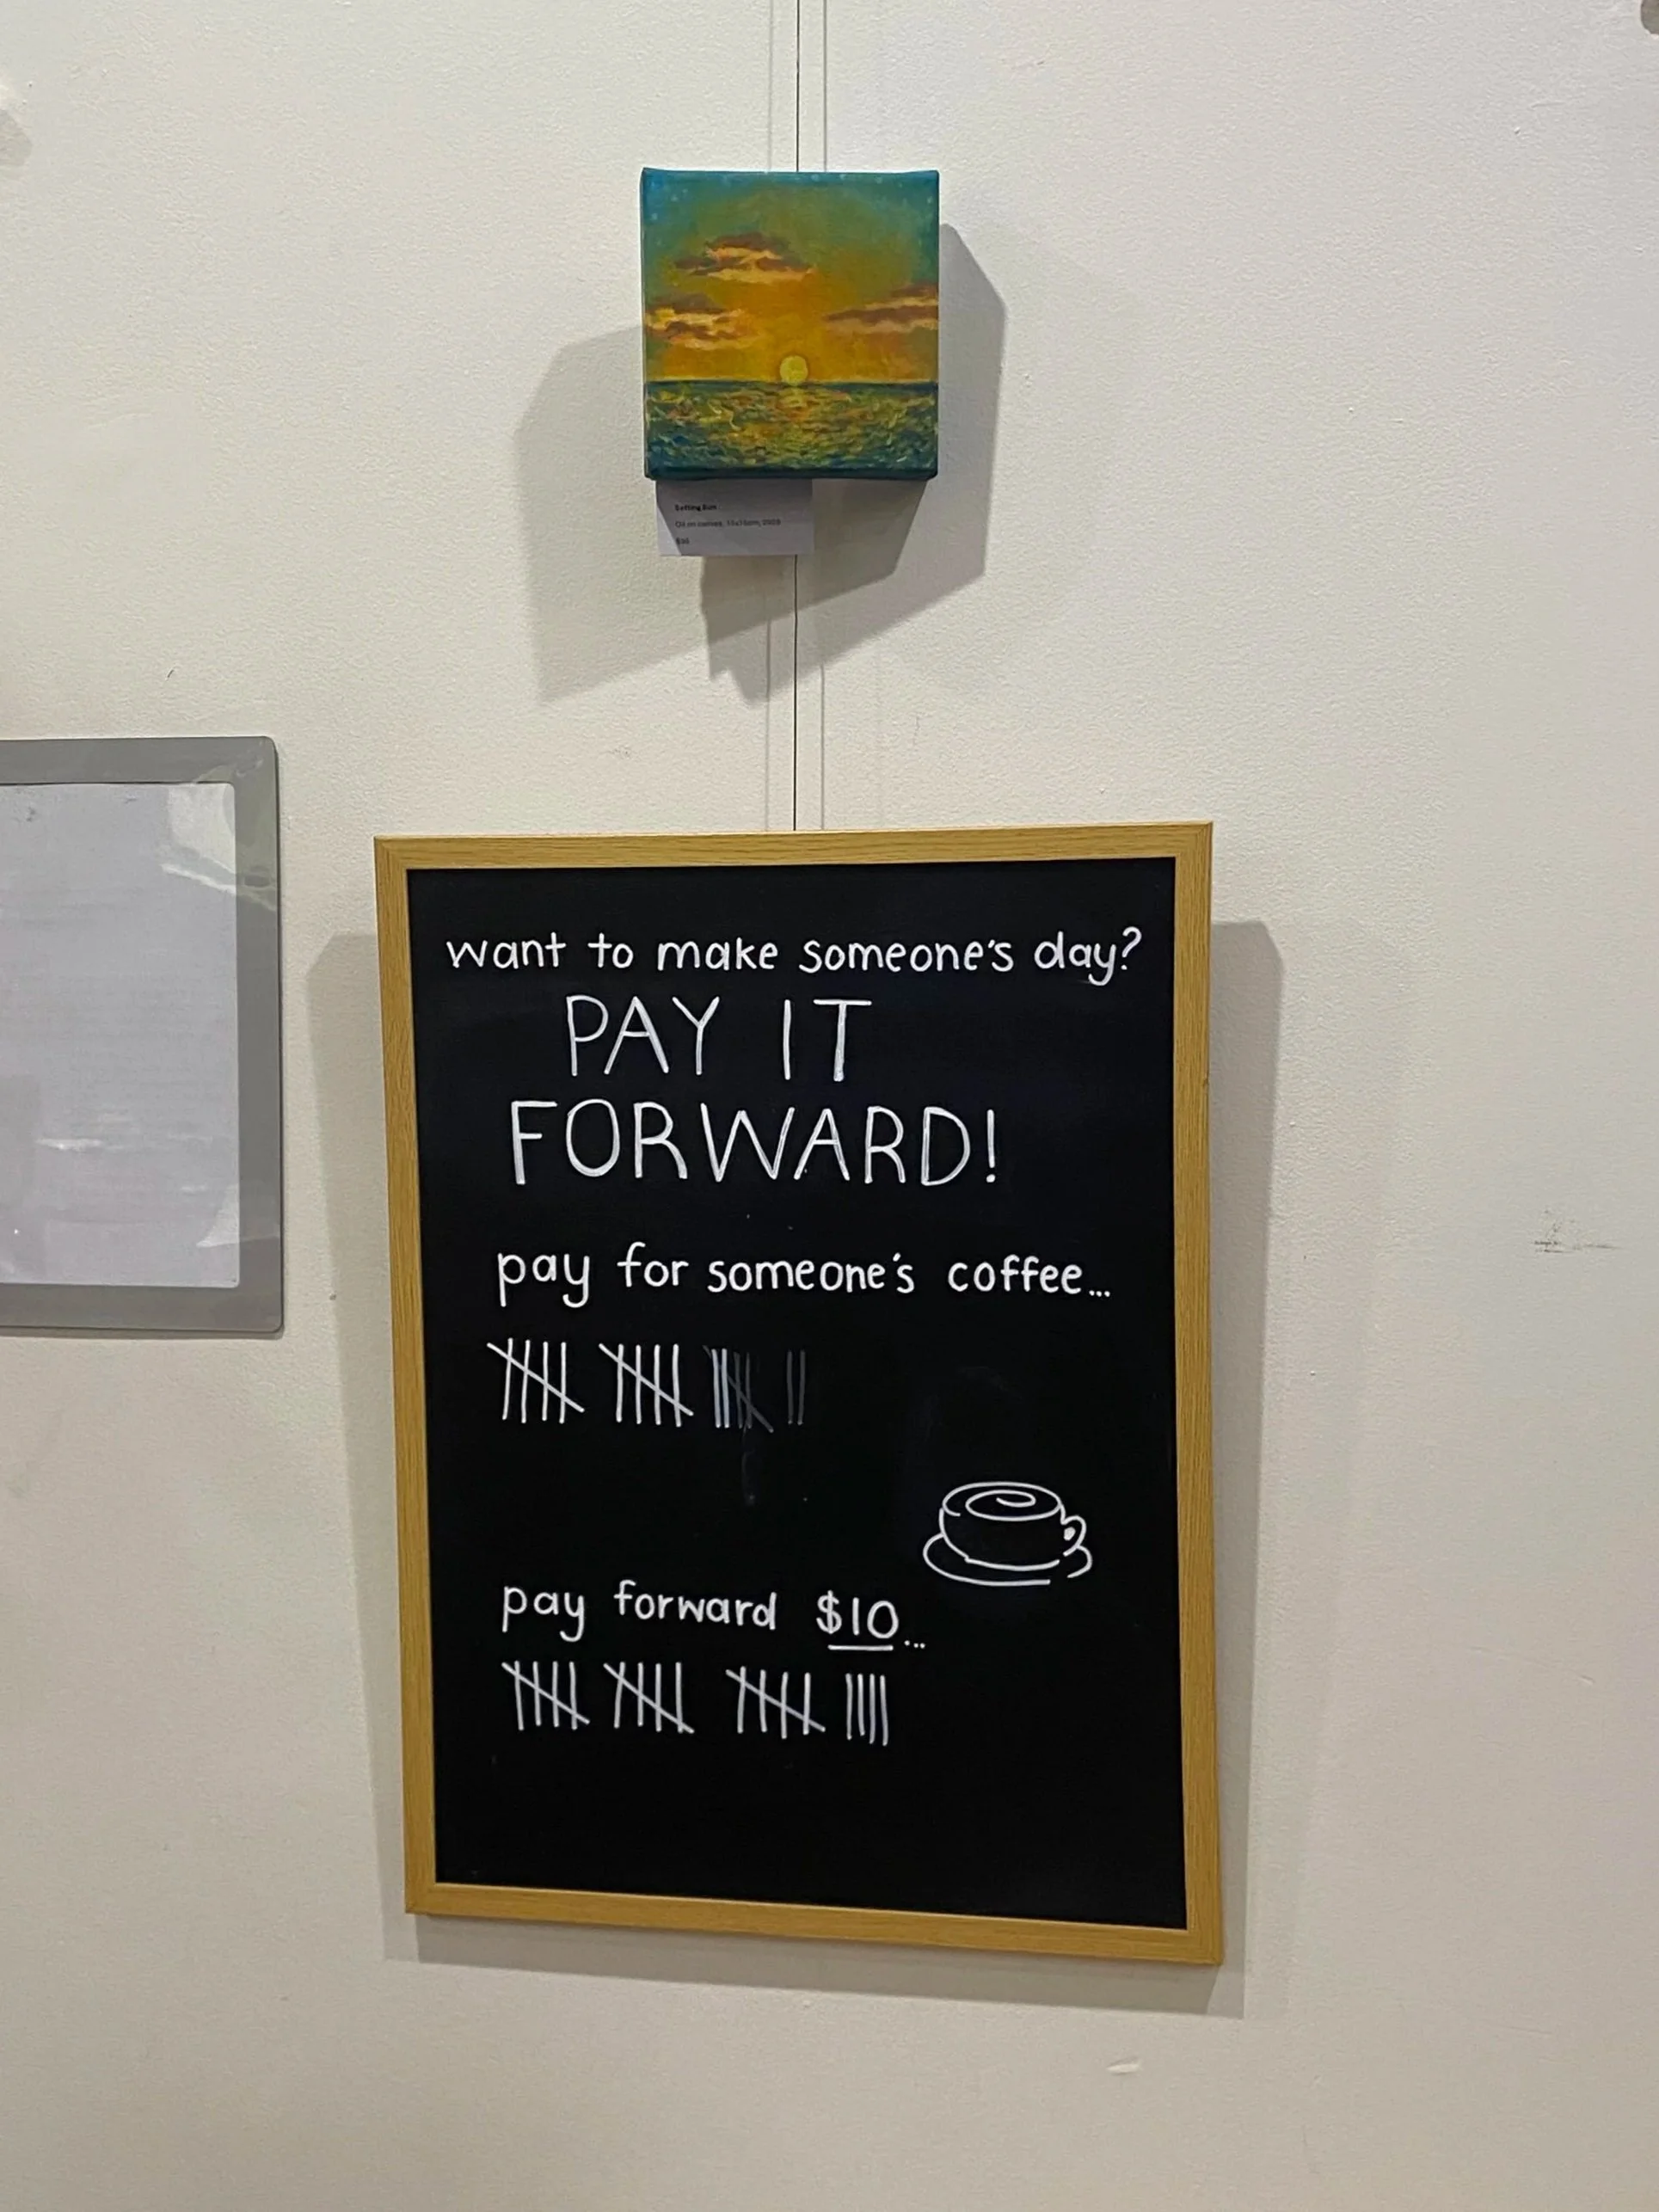 Setting Sun
want to make someone's day?
PAY IT
FORWARD!
pay for someone's coffee...
pay forward $10...